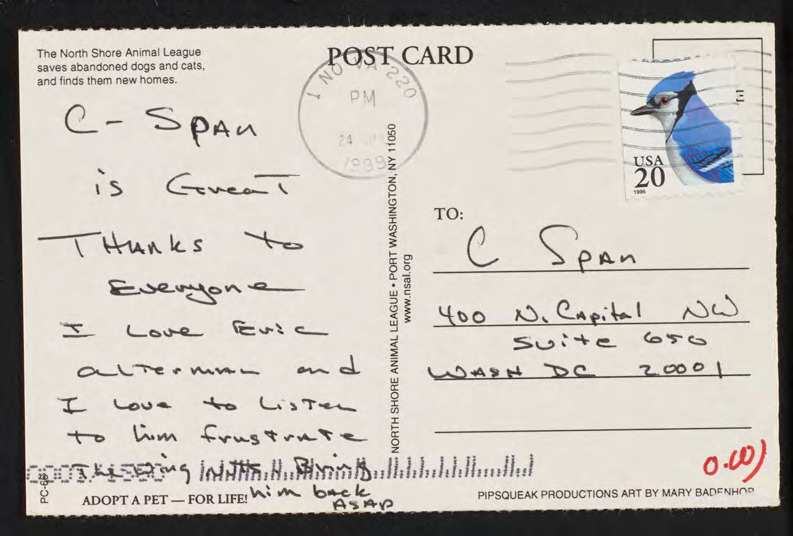 The North Shore Animal League
saves abandoned dogs and cats,
and finds them new homes.
POST CARD
1 NO VA 220
PM
24
1999
USA
20
1996
C-Span
is Great
Thanks to
Everyone
I Love Eric
alterman and
I Love to Listen
to him frustrate
The Ring Bring
him back
ASAP
NORTH SHORE ANIMAL LEAGUE • PORT WASHINGTON, NY 11050
www.nsal.org
TO:
C Span
400 N. Capital NW
Suite 650
WASH DC 20001
PC-6
ADOPT A PET — FOR LIFE!
PIPSQUEAK PRODUCTIONS ART BY MARY BADENHOP